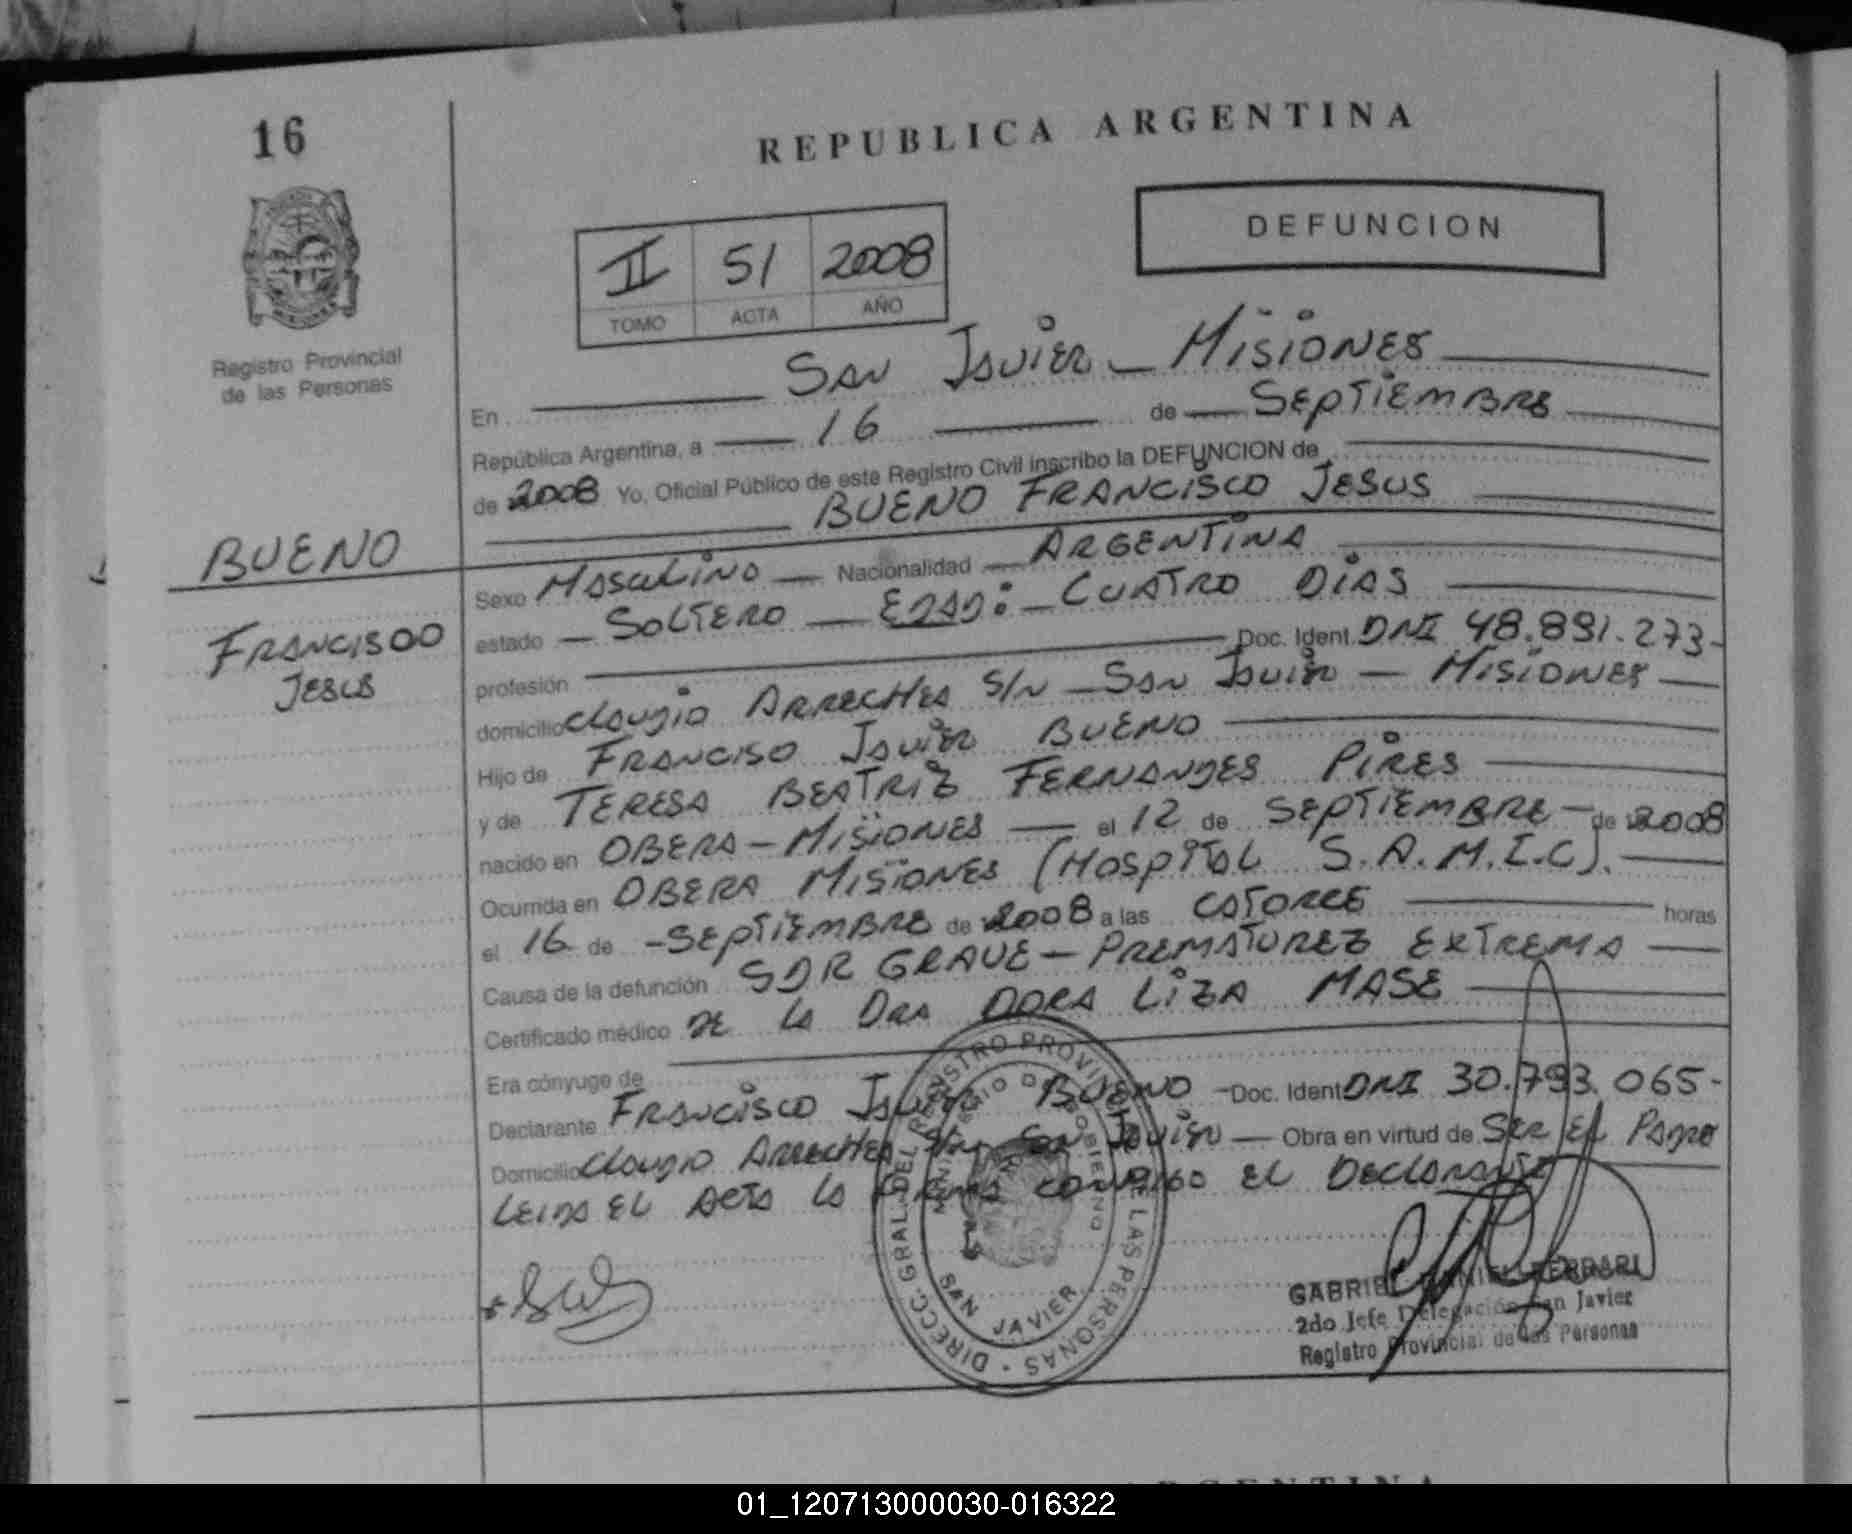 16
REPUBLICA ARGENTINA
DEFUNCION
II 51 2008
TOMO ACTA AÑO
Registro Provincial
de las Personas
En SAN JAVIER - MISIONES
República Argentina, a 16 de SEPTIEMBRE
de 2008 Yo, Oficial Público de este Registro Civil inscribo la DEFUNCION de
BUENO FRANCISCO JESUS
BUENO
FRANCISCO
JESUS
Sexo MASCULINO Nacionalidad ARGENTINA
estado SOLTERO EDAD: CUATRO DIAS
profesión Doc. Ident. DNI 48.891.273-
domicilio CLAUDIO ARRECHEA S/N - SAN JAVIER - MISIONES
Hijo de FRANCISO JAVIER BUENO
y de TERESA BEATRIZ FERNANDES PIRES
nacido en OBERA - MISIONES el 12 de SEPTIEMBRE de 2008
Ocurrida en OBERA MISIONES (HOSPITAL S.A.M.I.C).
el 16 de -SEPTIEMBRE de 2008 a las CATORCE horas
Causa de la defunción SDR GRAVE - PREMATUREZ EXTREMA
Certificado médico DE LA DRA DORA LIZA MASE
Era cónyuge de
Declarante FRANCISCO JAVIER BUENO - Doc. Ident DNI 30.793.065-
Domicilio CLAUDIO ARRECHEA S/N SAN JAVIER - Obra en virtud de SER EL PADRE
LEIDA EL ACTA LA FIRMA CONMIGO EL DECLARANTE
DIRECC. GRAL. DEL REGISTRO PROVINCIAL DE LAS PERSONAS
MINISTERIO DE GOBIERNO
SAN JAVIER
GABRIEL DANIEL FERRARI
2do Jefe Delegación San Javier
Registro Provincial de las Personas
ARGENTINA
01_120713000030-016322